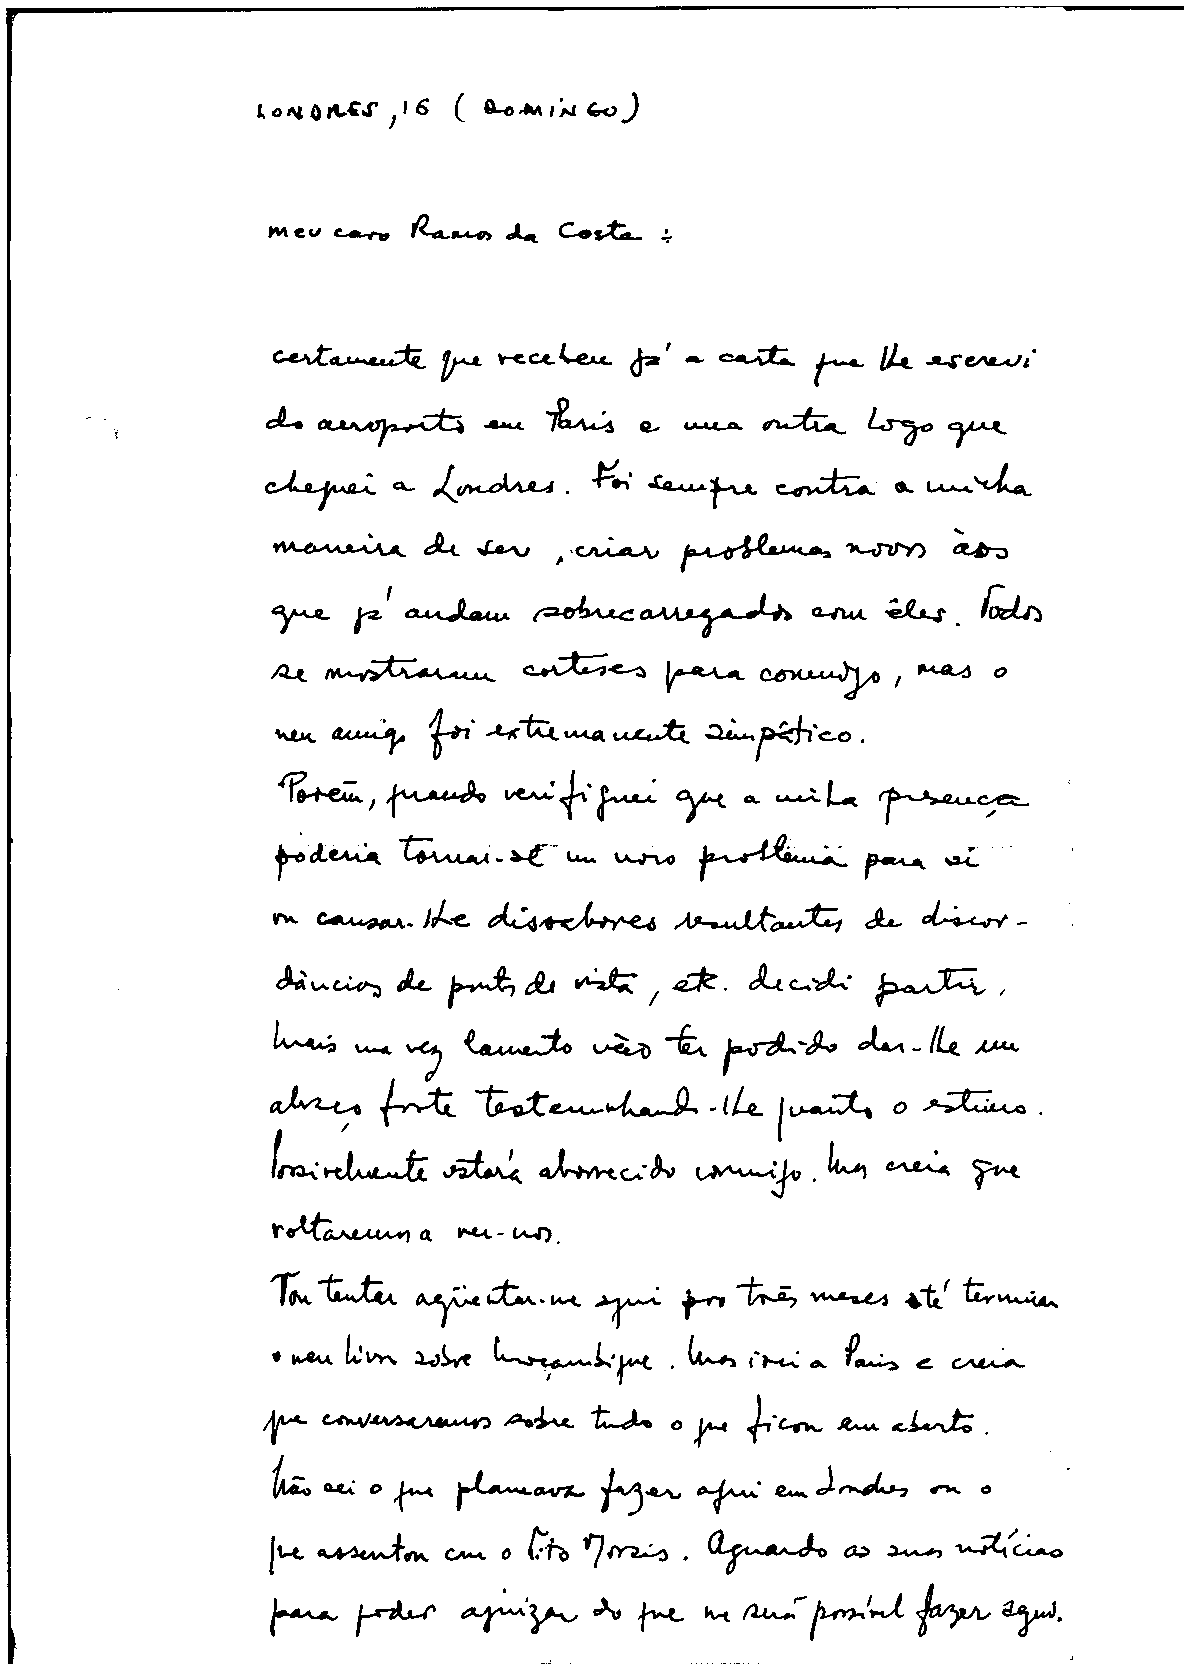 LONDRES, 16 (DOMINGO)
meu caro Ramos da Costa:
certamente que recebeu já a carta que lhe escrevi
do aeroporto em Paris e uma outra logo que
cheguei a Londres. Foi sempre contra a minha
maneira de ser, criar problemas novos àos
que já andam sobrecarregados com êles. Todos
se mostraram corteses para comigo, mas o
meu amigo foi extremamente simpático.
Porém, quando verifiquei que a minha presença
poderia tornar-se um novo problema para si
ou causar-lhe dissabores resultantes de discor-
dâncias de ponto de vista, etc. decidi partir.
Mais uma vez lamento não ter podido dar-lhe um
abraço forte testemunhando-lhe quanto o estimo.
Possivelmente estará aborrecido comigo. Mas creia que
voltaremos a ver-nos.
Vou tentar agüentar-me aqui por três meses até terminar
o meu livro sobre Moçambique. Mas irei a Paris e creia
que conversaremos sobre tudo o que ficou em aberto.
Não sei o que planeava fazer aqui em Londres ou o
que assentou com o Tito Morais. Aguardo as suas notícias
para poder ajuizar do que me será possível fazer aqui.